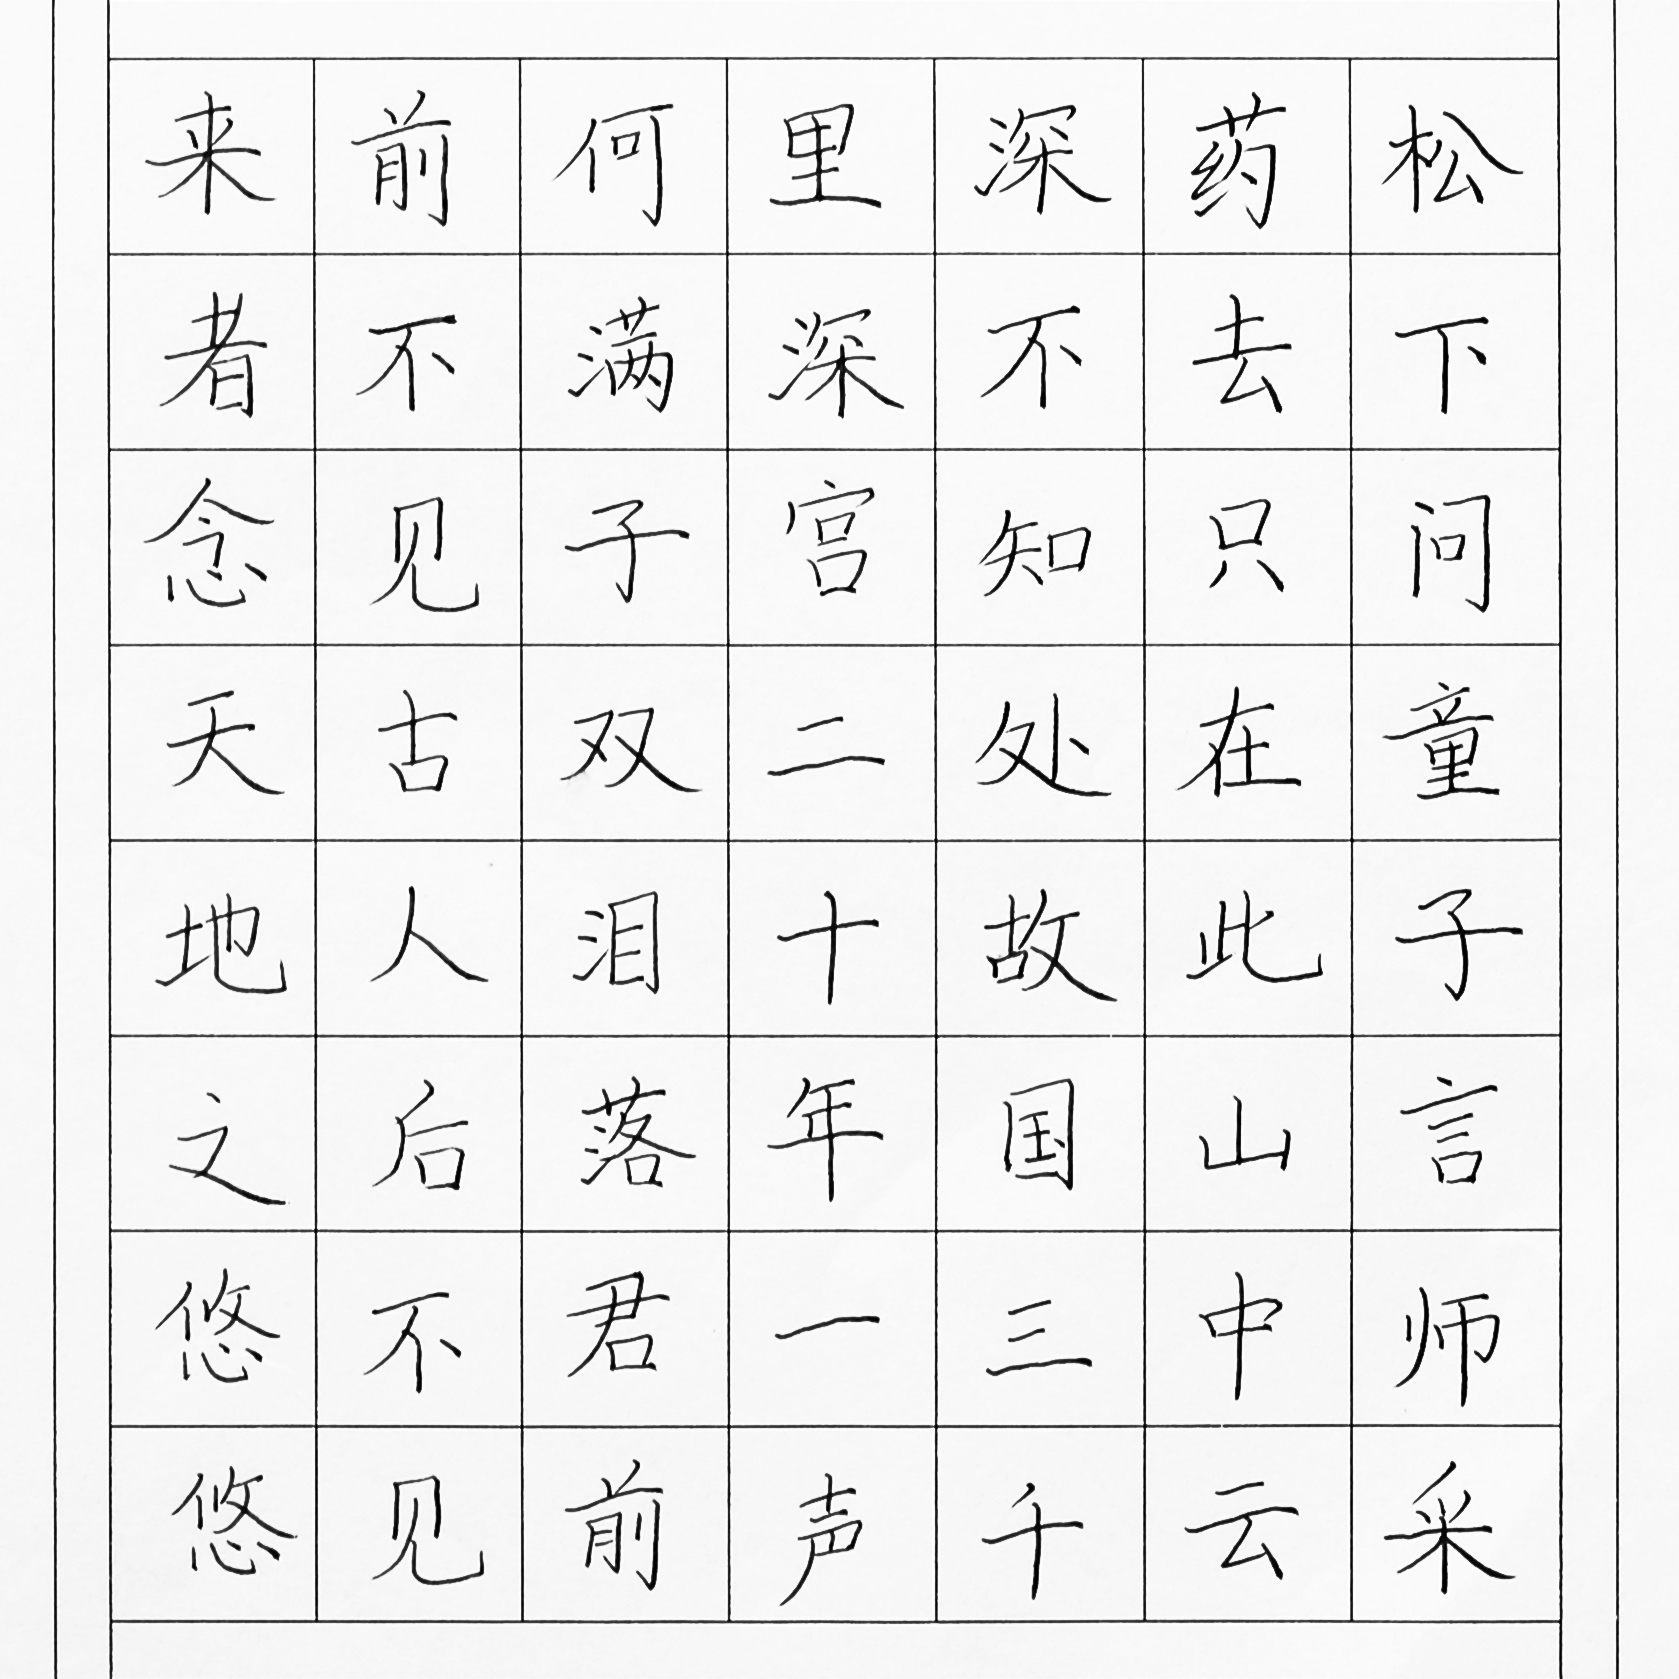 松下问童子言师采
药去只在此山中云
深不知处故国三千
里深宫二十年一声
何满子双泪落君前
前不见古人后不见
来者念天地之悠悠